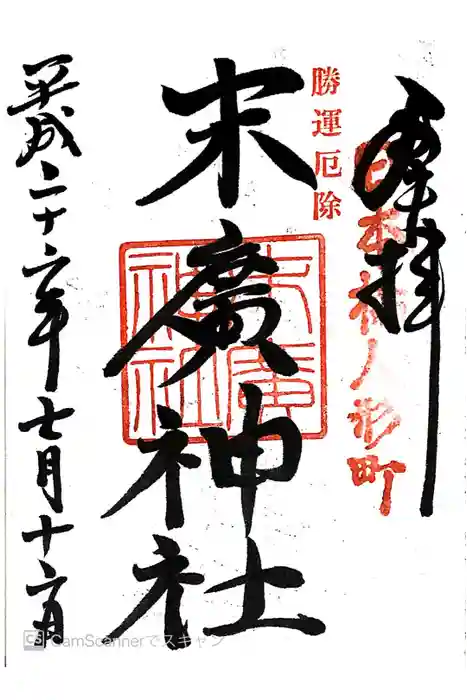 奉拝
日本橋人形町
勝運厄除
末廣神社
末廣神社
平成二十六年七月十六日
CS CamScannerでスキャン